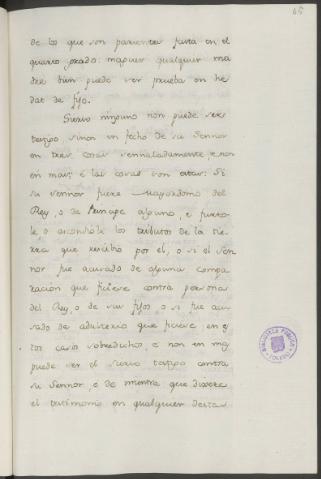 65
de los que son parientes fasta en el
quarto grado: maguer qualquier ma
dre bien puede ser prueba en he
dat de fijo.
Siervo ninguno non puede ser
testigo sinon en fecho de su Sennor
en tres cosas sennaladamente, e non
en mas; e las cosas son estas: Si
su sennor fuere Mayordomo del
Rey, o de Principe alguno, e furta-
le o ascondiole los tributos de la tie
rra que rescibio por el, o si el Sen
nor fue acusado de alguna compa
ración que ficiese contra persona
del Rey, o de sus fijos o si fue acu
sado de adulterio que ficiese, en es
tos casos sobredichos e non en mas
puede ser el siervo testigo contra
su Sennor, e de mientra que dixere
el testimonio en qualquier destas
BIBLIOTECA PUBLICA
TOLEDO